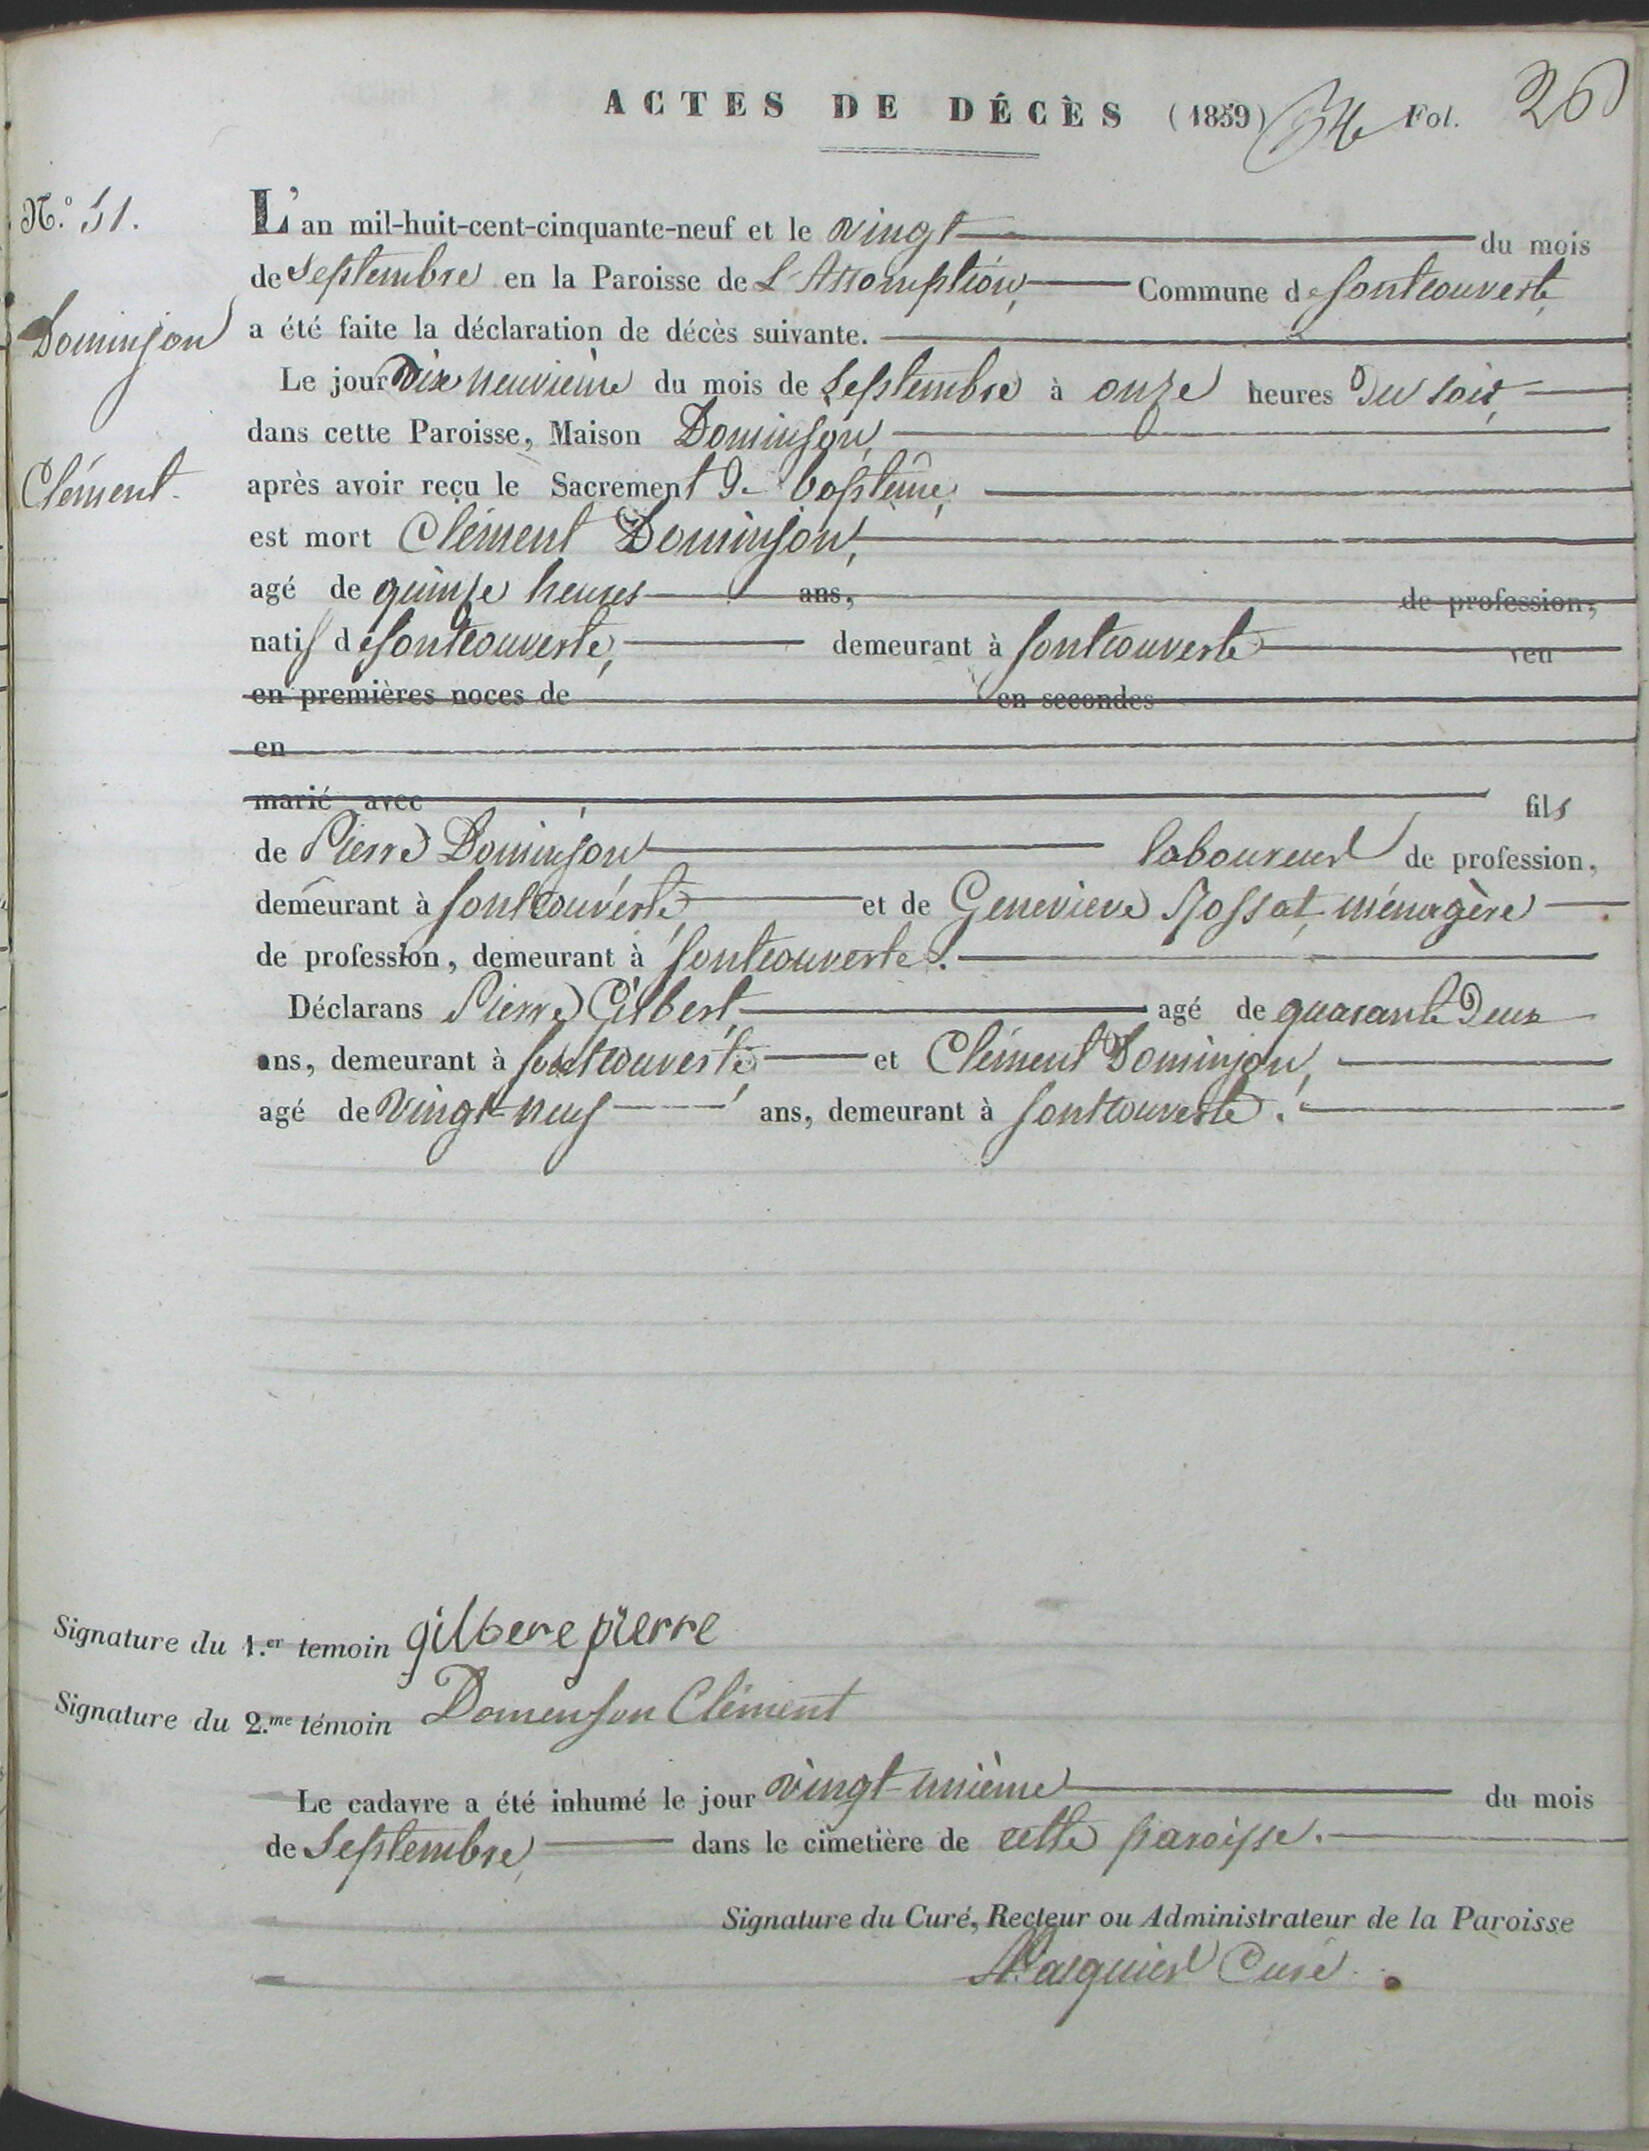 ACTES DE DÉCÈS (1859) Fol. 26
N.º 51.
L'an mil-huit-cent-cinquante-neuf et le vingt du mois
de Septembre en la Paroisse de L'Assomption, Commune de fontcouverte,
Dominjon
a été faite la déclaration de décès suivante.
Le jour Dix neuvième du mois de Septembre à onze heures du soir,
dans cette Paroisse, Maison Dominjon,
Clément
après avoir reçu le Sacrement de baptême,
est mort Clément Dominjon,
agé de quinze heures ans, de profession,
natif de fontcouverte, demeurant à fontcouverte veu
en premières noces de en secondes
en
marié avec fils
de Pierre Dominjon laboureur de profession,
demeurant à fontcouverte, et de Genevieve Rossat, ménagère
de profession, demeurant à fontcouverte.
Déclarans Pierre Gilbert, agé de quarante deux
ans, demeurant à fontcouverte, et Clément Dominjon,
agé de vingt-neuf ans, demeurant à fontcouverte.
Signature du 1.er temoin gilbere pierre
Signature du 2.me témoin Domenjon Clément
Le cadavre a été inhumé le jour vingt-unième du mois
de Septembre, dans le cimetière de cette paroisse.
Signature du Curé, Recteur ou Administrateur de la Paroisse
Curé.